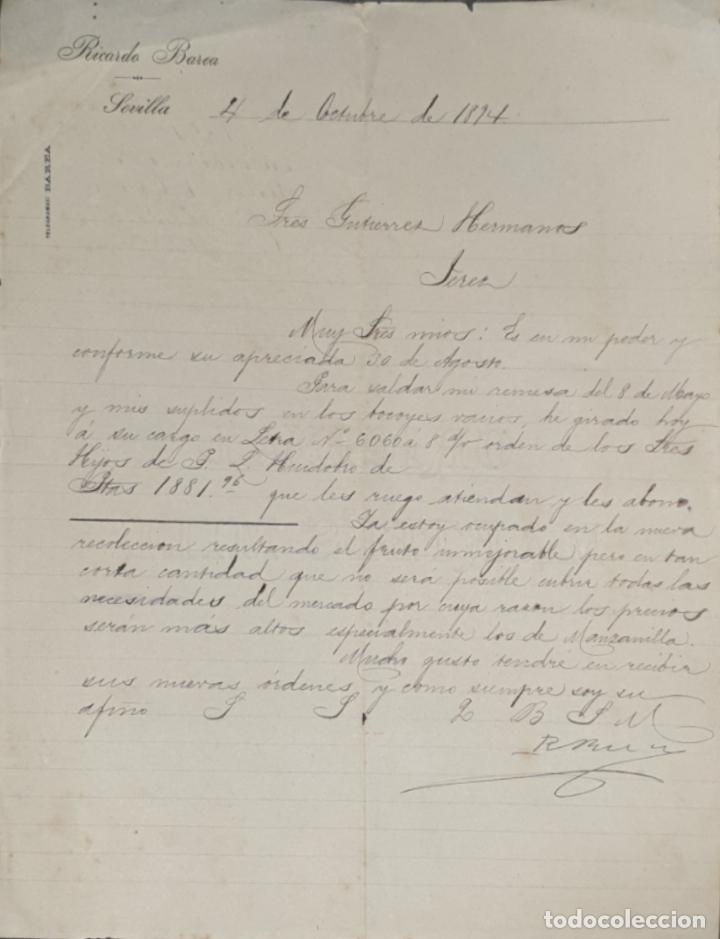 Ricardo Barea
Sevilla 4 de Octubre de 1894
TELEGRAMAS: BAREA
Sres Gutierrez Hermanos
Jerez
Muy Sres mios: Es en mi poder y
conforme su apreciada 30 de Agosto.
Para saldar mi remesa del 8 de Mayo
y mis suplidos en los bocoyes vacios, he girado hoy
á su cargo en Letra Nº 6060 a 8 d/v orden de los Sres
Hijos de P. L. Huidobro de
Ptas 1881.96 que les ruego atiendan y les abono.
Ya estoy ocupado en la nueva
recoleccion resultando el fruto inmejorable pero en tan
corta cantidad que no será posible cubrir todas las
necesidades del mercado por cuya razon los precios
serán más altos especialmente los de Manzanilla.
Mucho gusto tendré en recibir
sus nuevas órdenes y como siempre soy su
afmo S S Q B S M
R Barea
todocoleccion